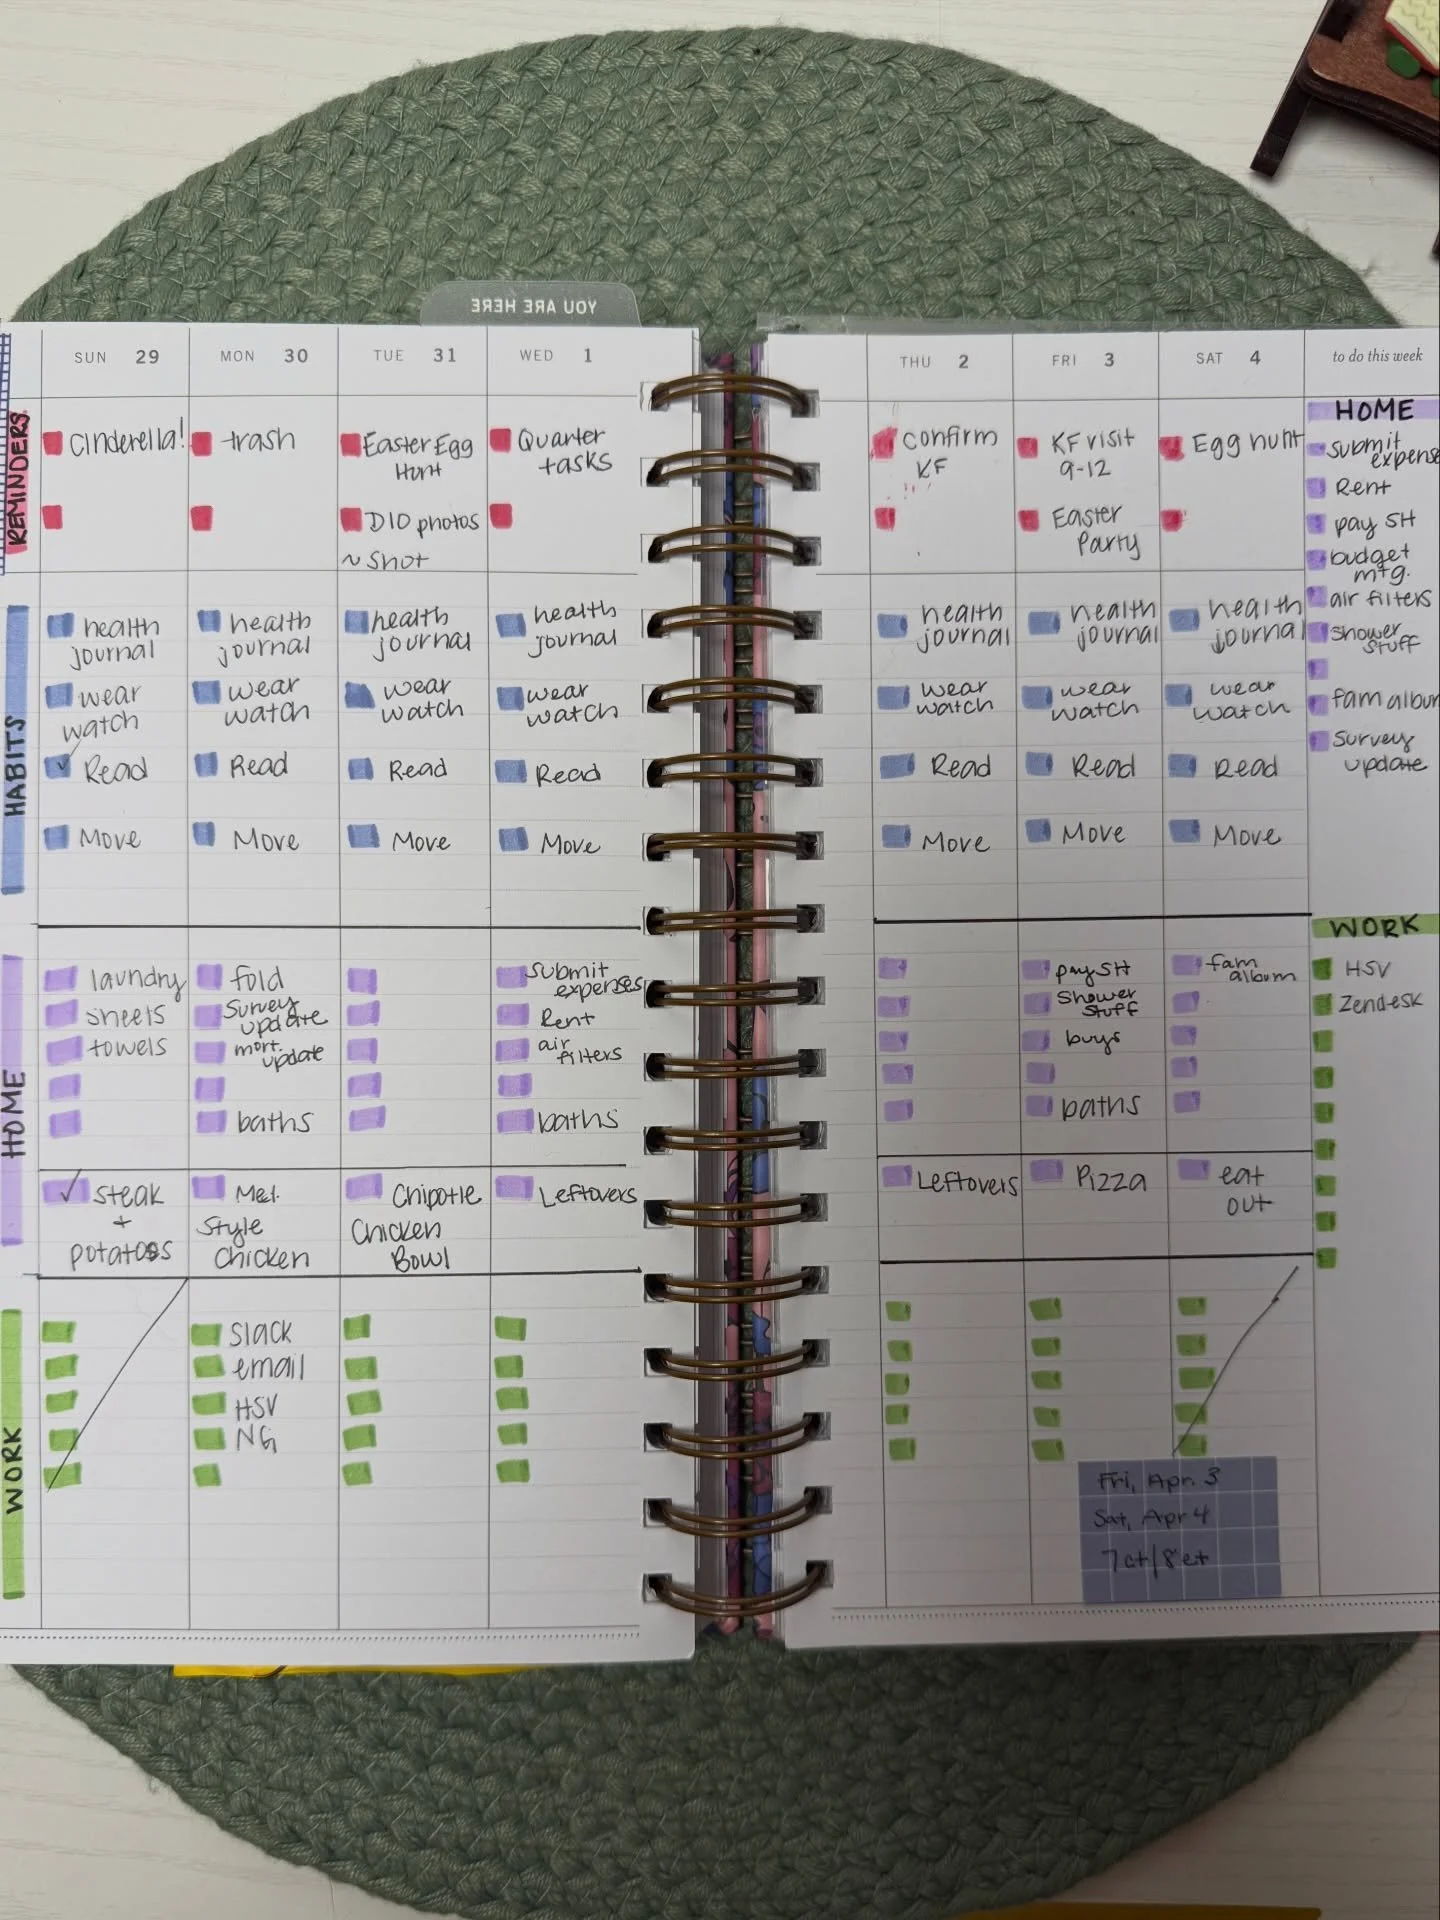 YOU ARE HERE
SUN 29
MON 30
TUE 31
WED 1
THU 2
FRI 3
SAT 4
to do this week
REMINDERS
Cinderella!
trash
Easter Egg
Hunt
D10 photos
~ Shot
Quarter
tasks
confirm
KF
KF visit
9-12
Easter
Party
Egg hunt
HABITS
health
journal
wear
watch
Read
Move
health
journal
wear
watch
Read
Move
health
journal
wear
watch
Read
Move
health
journal
wear
watch
Read
Move
health
journal
wear
watch
Read
Move
health
journal
wear
watch
Read
Move
health
journal
wear
watch
Read
Move
HOME
laundry
sheets
towels
steak
+
potatoes
fold
Survey
update
mort.
update
baths
Med.
Style
Chicken
Chipotle
Chicken
Bowl
Submit
expenses
Rent
air
filters
baths
Leftovers
Leftovers
pay SH
Shower
stuff
buys
baths
Pizza
fam
album
eat
out
WORK
Slack
email
HSV
NG
Fri, Apr. 3
Sat, Apr 4
7 ct/8 et
HOME
submit
expense
Rent
pay SH
budget
mtg.
air filters
shower
stuff
fam album
Survey
update
WORK
HSV
Zendesk